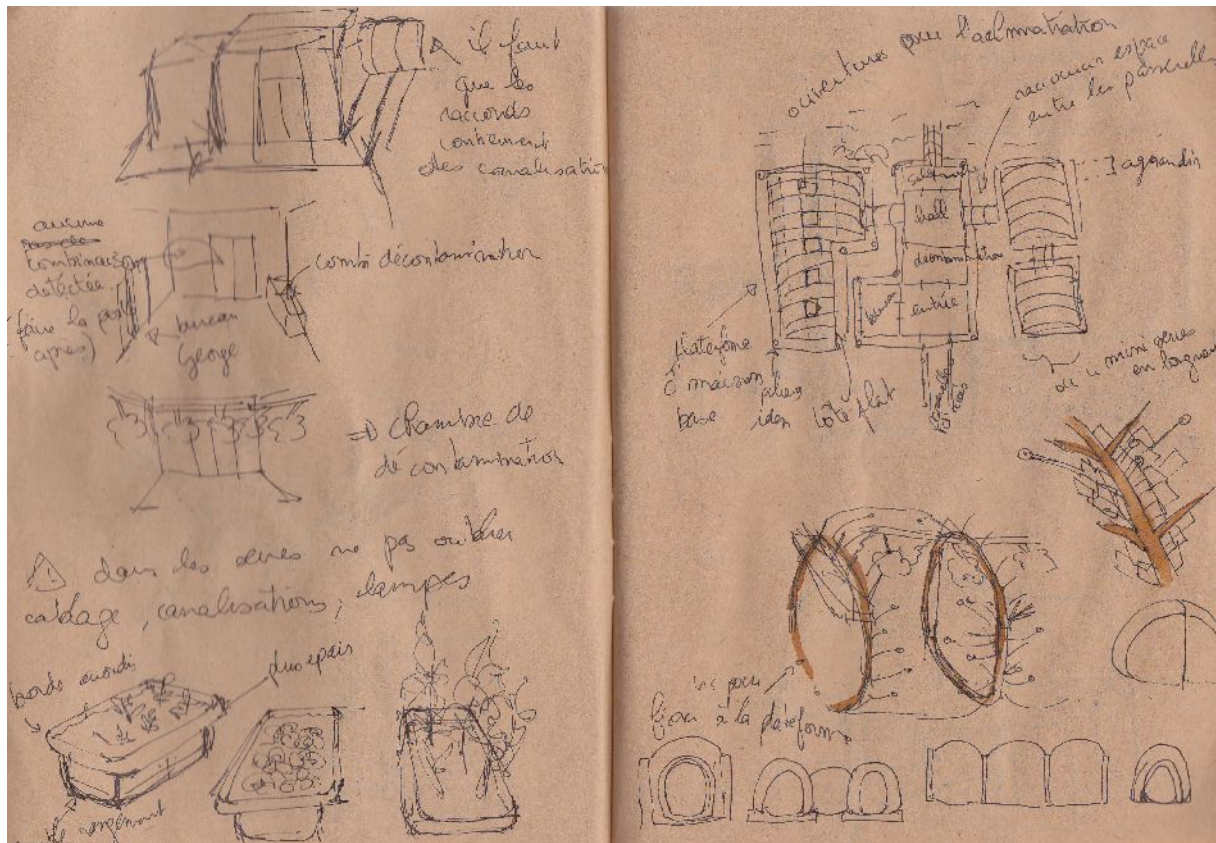 il faut
que les
raccords
contiennent
des canalisation
aucune
combinaison
détectée
(faire la porte
après)
bureau
George
combi décontamination
=> chambre de
décontamination
dans les serres ne pas oublier
cablage, canalisations, lampes
bords arrondis
plus epais
ouvertures pour l'acclimatation
raccourcir espace
entre les passerelles
agrandir
hall
décontamination
bureau
entrée
plateforme
maison
base idem côté plat
mini serres
en longueur
vis pour
fixer à la plateforme